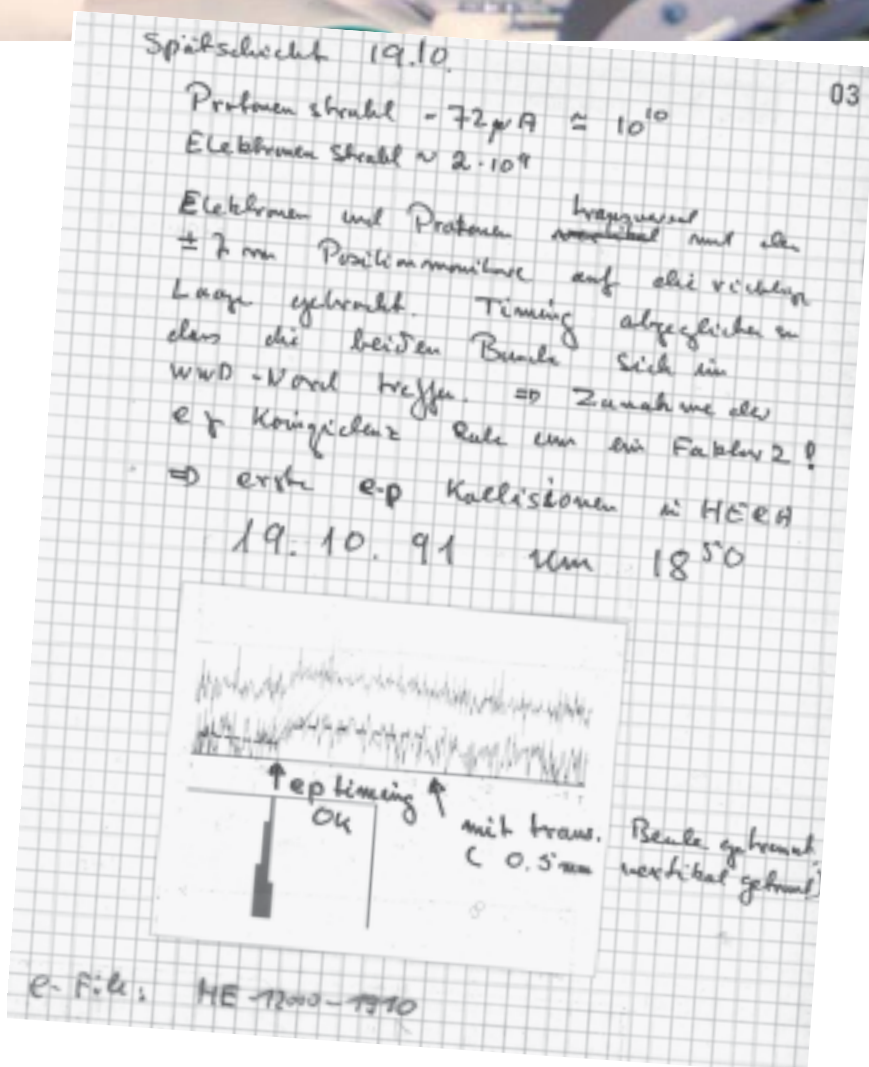 Spätschicht 19.10.
03
Protonen strahl ~ 72 µA ≃ 10¹⁰
Elektronen Strahl ~ 2·10⁹
transversal
Elektronen und Protonen mit den
± 7 mm Positionmonitore auf die richtige
Lage gebracht. Timing abgeglichen so
dass die beiden Bunche sich im
WWD-Nord treffen. ⇒ Zunahme der
eγ Koinzidenz Rate um ein Faktor 2!
⇒ erste e-p Kollisionen in HERA
19. 10. 91 um 18⁵⁰
ep timing
OK
mit trans. Beule getrennt
( 0.5 mm vertikal getrennt)
e-File: HE 12000-1910